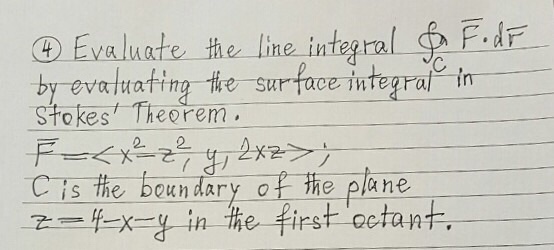 ④ Evaluate the line integral ∮_C F̅·dr̅
by evaluating the surface integral in
Stokes' Theorem.
F̅=<x²-z², y, 2xz>;
C is the boundary of the plane
z=4-x-y in the first octant.